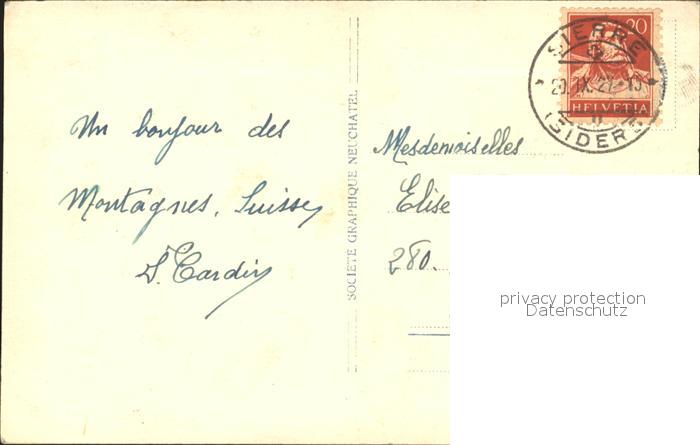 Un bonjour des
Montagnes. Suisses
S. Cardis
SOCIÉTÉ GRAPHIQUE NEUCHATEL
20
SIERRE
20.IX.27-15
HELVETIA
(SIDERS)
Mesdemoiselles
Elise
280.
privacy protection
Datenschutz